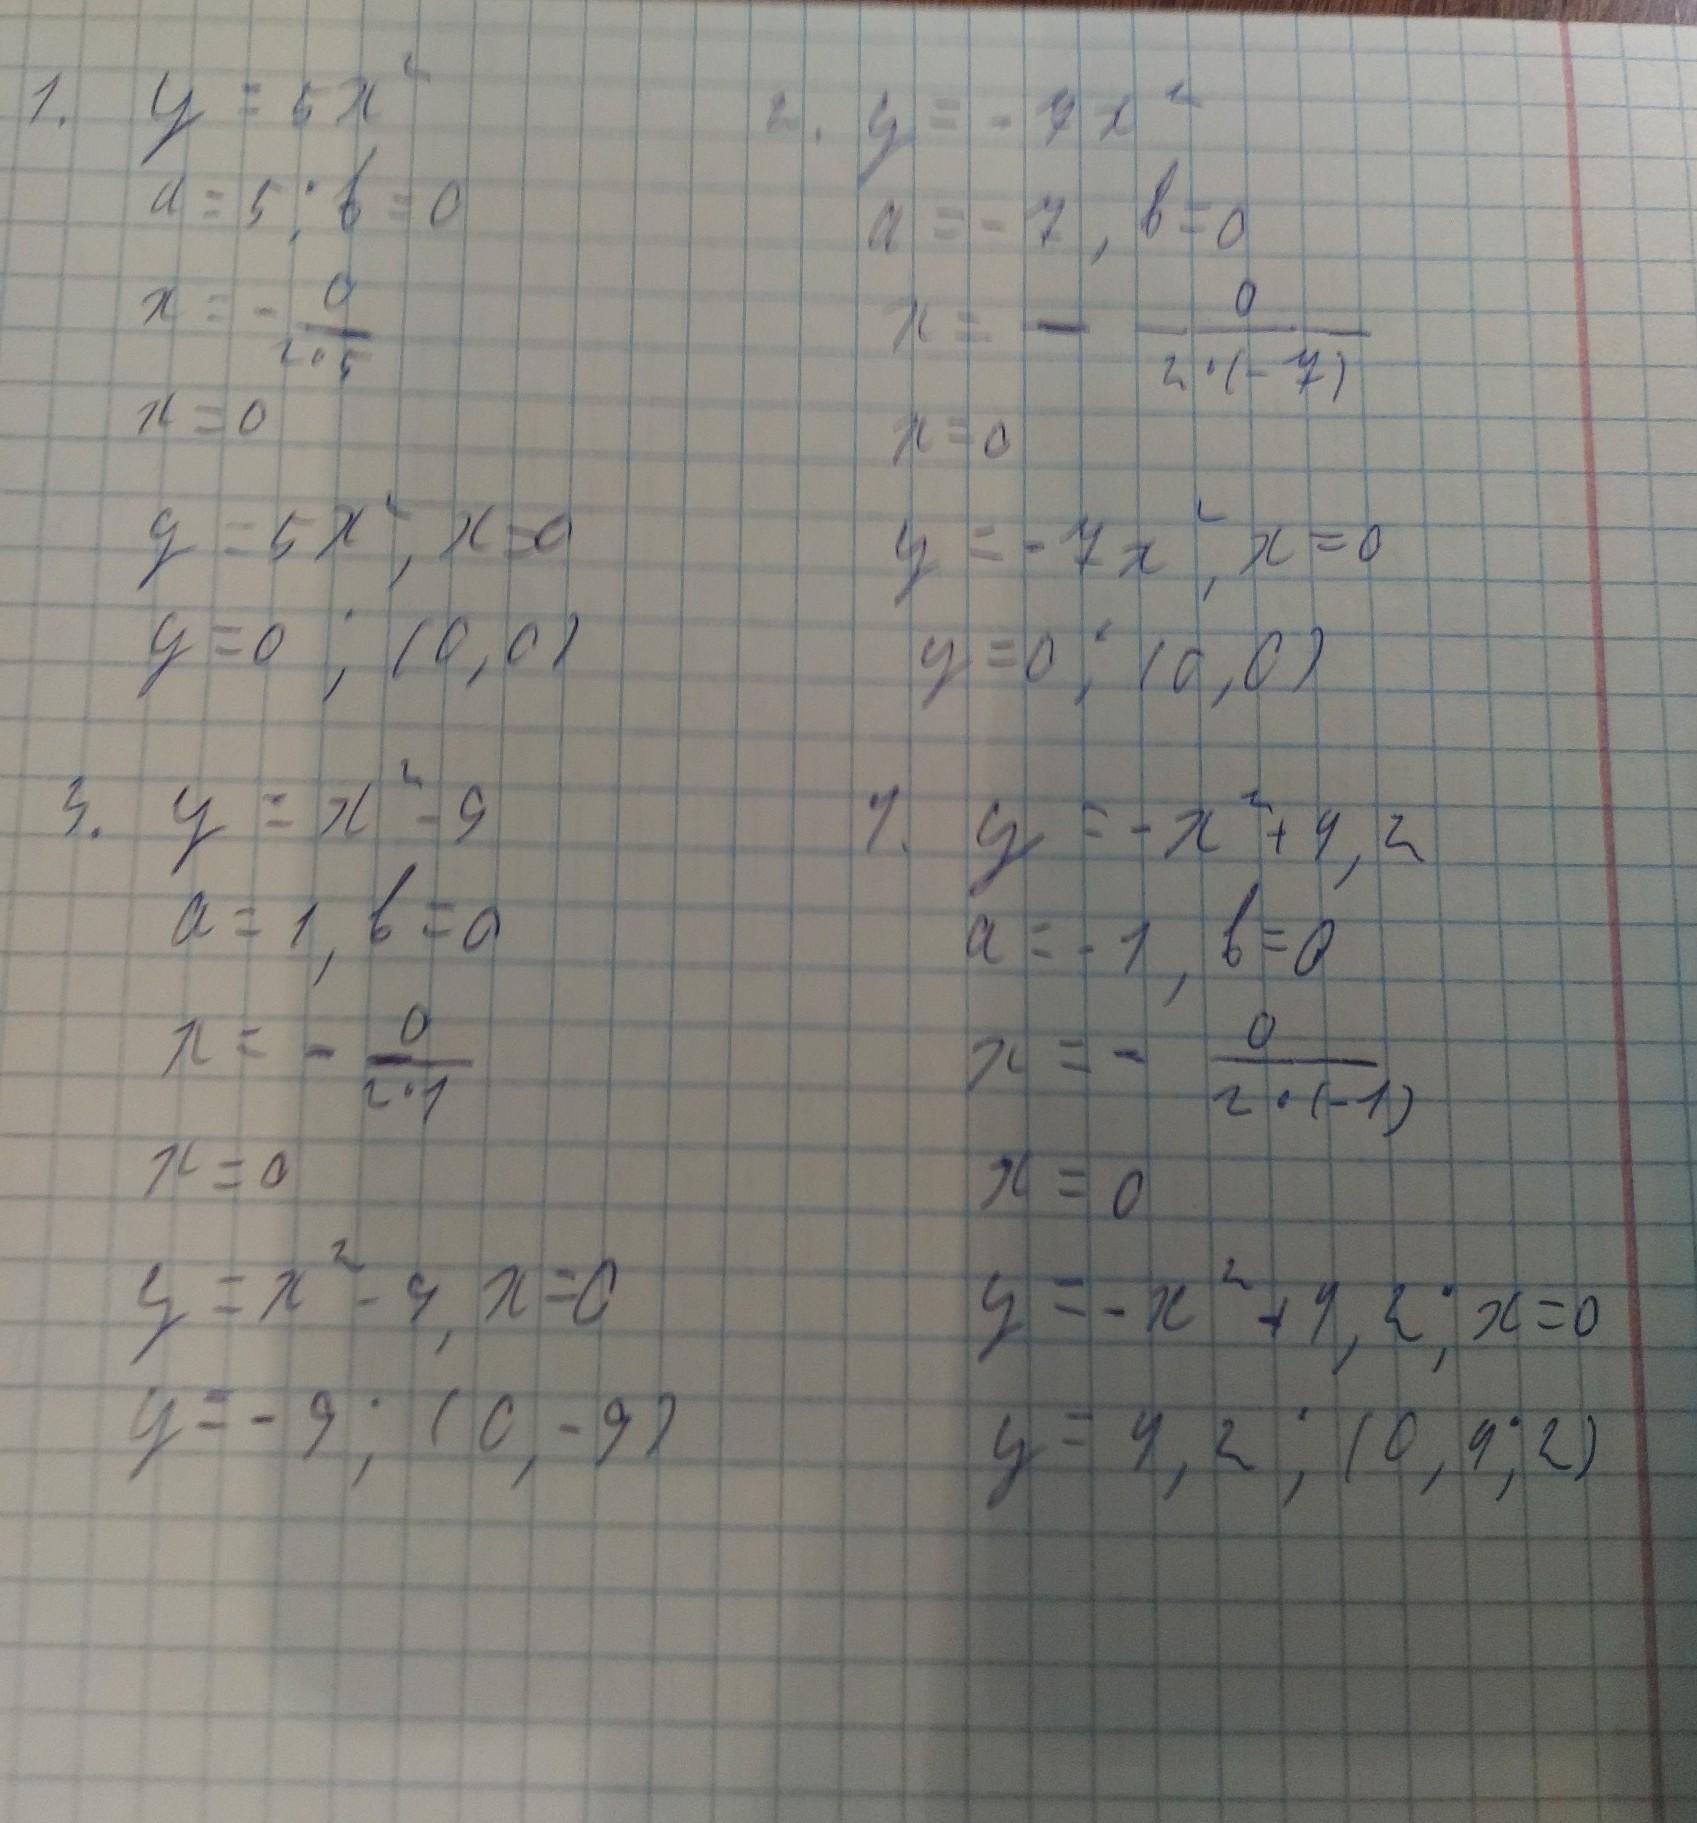 1. y = 5x²
a = 5; b = 0
x = - 0/(2·5)
x = 0
y = 5x², x = 0
y = 0; (0, 0)
2. y = -7x²
a = -7, b = 0
x = - 0/(2·(-7))
x = 0
y = -7x², x = 0
y = 0; (0, 0)
3. y = x² - 9
a = 1, b = 0
x = - 0/(2·1)
x = 0
y = x² - 9, x = 0
y = -9; (0, -9)
4. y = -x² + 4,2
a = -1, b = 0
x = - 0/(2·(-1))
x = 0
y = -x² + 4,2; x = 0
y = 4,2; (0, 4;2)